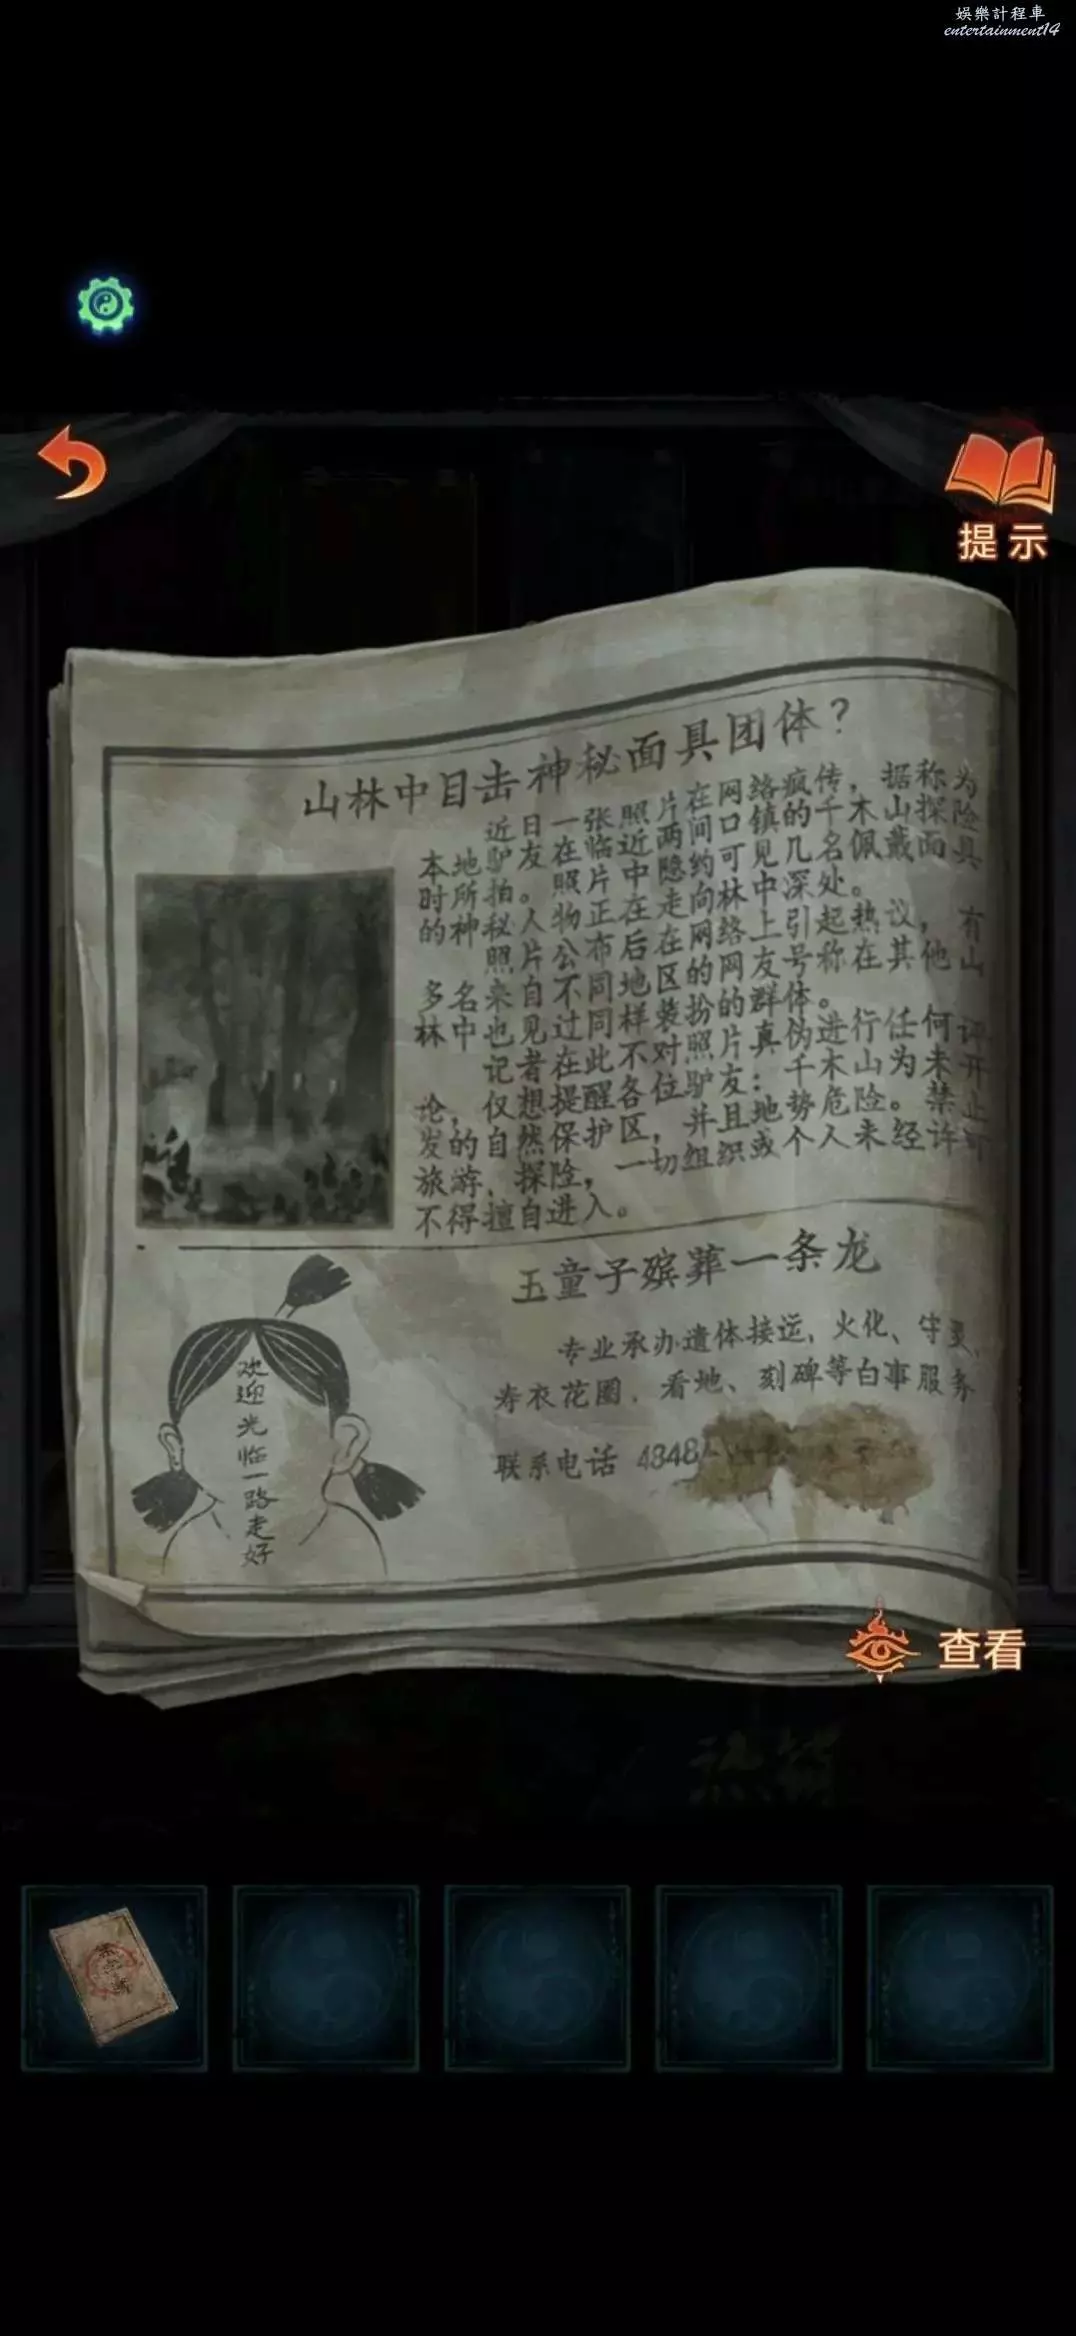 娛樂計程車
entertainment14
提示
山林中目击神秘面具团体?
近日一张照片在网络疯传，据称为
本地驴友在临近两间口镇的千木山探险
时所拍。照片中隐约可见几名佩戴面具
的神秘人物正在走向林中深处。
照片公布后在网络上引起热议，有
多名来自不同地区的网友号称在其他山
林中也见过同样装扮的群体。
记者在此不对照片真伪进行任何评
论，仅想提醒各位驴友：千木山为未开
发的自然保护区，并且地势危险。禁止
旅游、探险，一切组织或个人未经许可
不得擅自进入。
五童子殡葬一条龙
专业承办遗体接运，火化、守灵、
寿衣花圈、看地、刻碑等白事服务
联系电话 4848
欢迎光临一路走好
查看